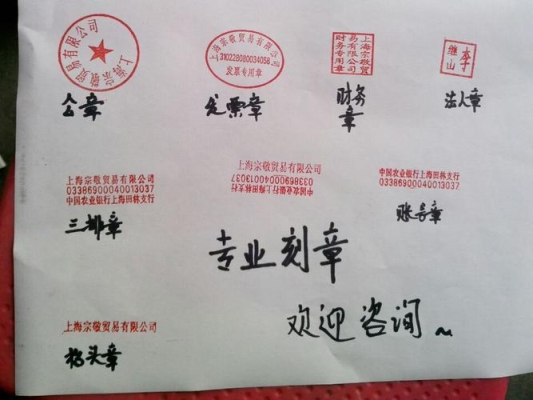 上海宗敬贸易有限公司
公章
上海宗敬贸易有限公司
310228080034058
发票专用章
发票章
上海宗敬贸
易有限公司
财务专用章
财务
章
李
继
山
法人章
上海宗敬贸易有限公司
03386900040013037
中国农业银行上海田林支行
三排章
上海宗敬贸易有限公司
03386900040013037
中国农业银行上海田林支行
中国农业银行上海田林支行
03386900040013037
账号章
专业刻章
欢迎咨询~
上海宗敬贸易有限公司
抬头章